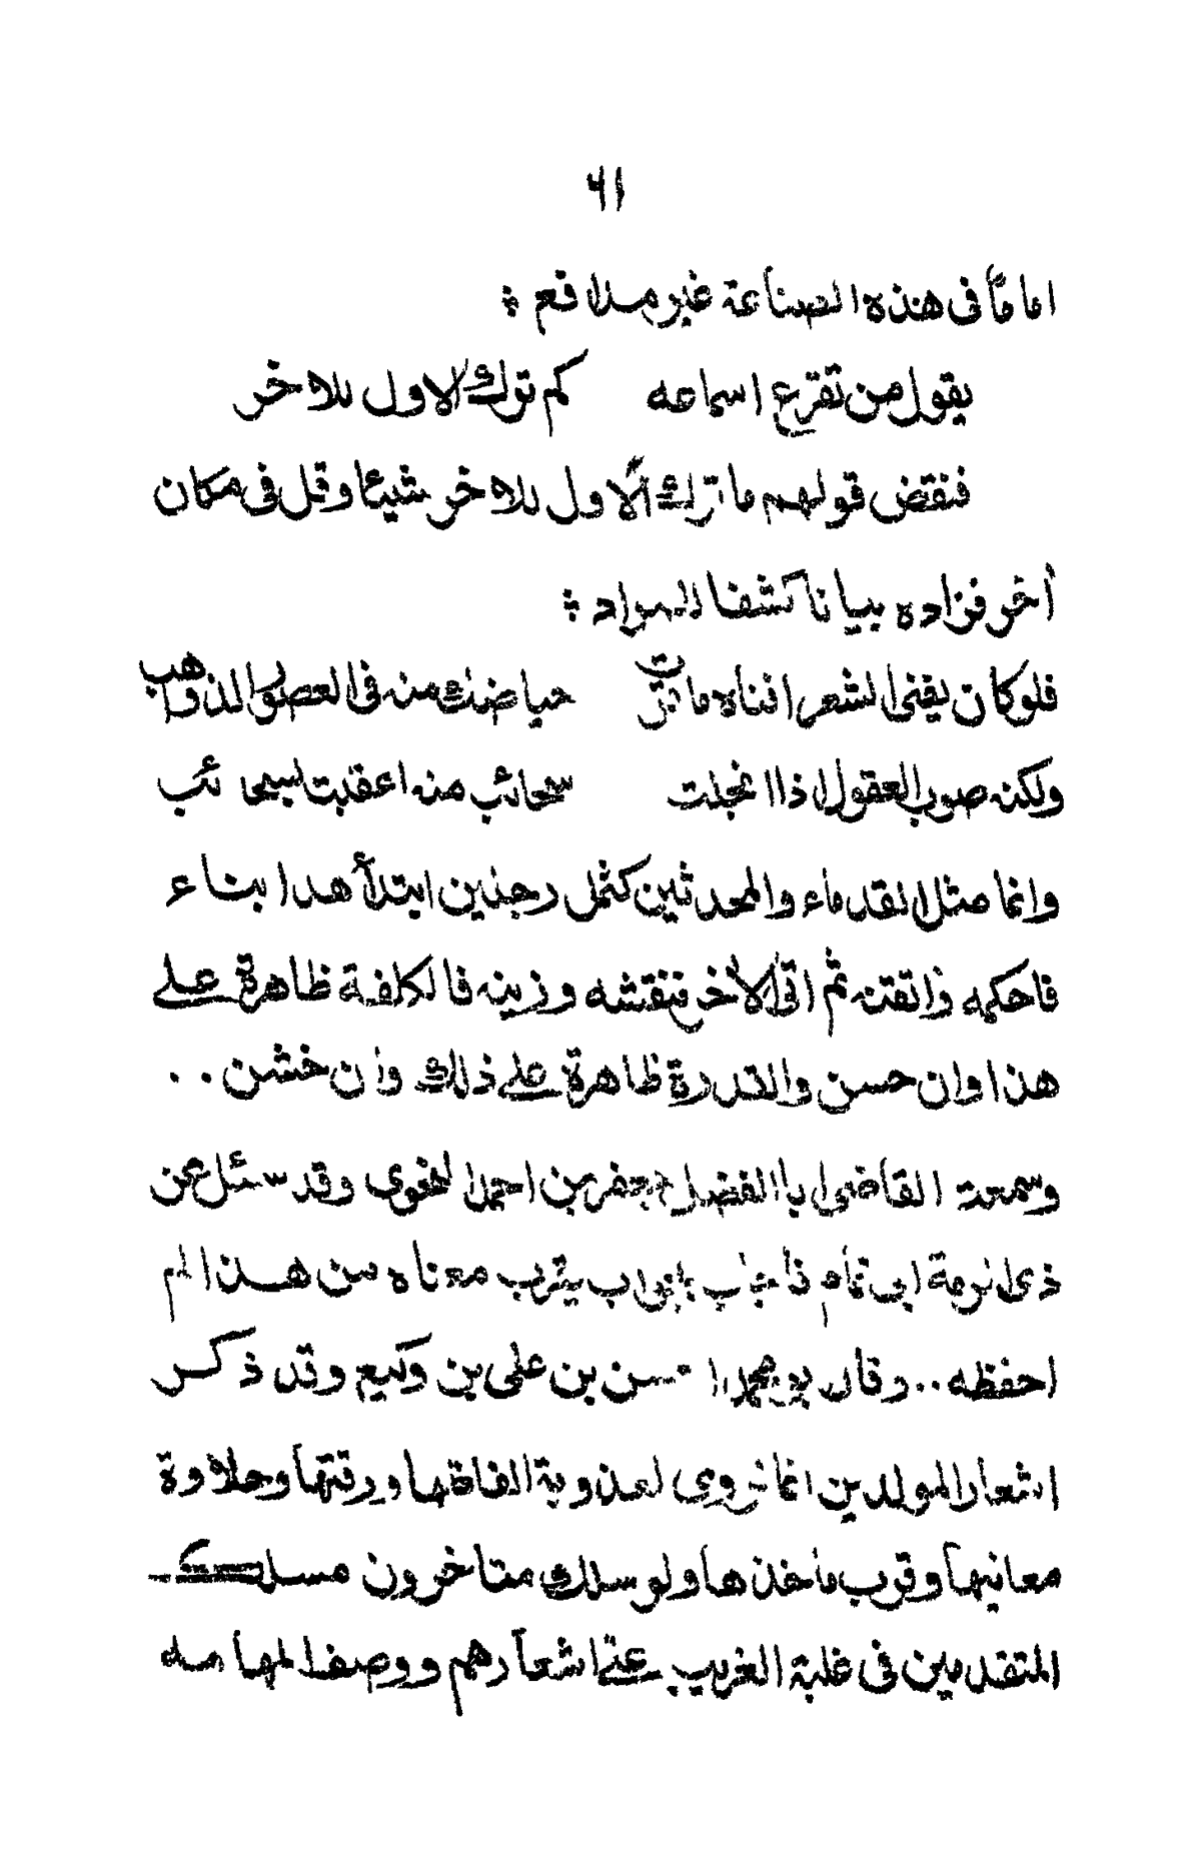 ٦١
اماماً فى هذه الصناعة غير مدافع :
يقول من تقرع اسماعه كم ترك الاول للاخر
فنقض قولهم ما ترك الاول للاخر شيئا وقل فى مكان
أخر فزاده بيانا كشفا للمراد :
فلو كان يفنى الشعر افناه ما قرت حياضك منه فى العصور الذواهب
ولكنه صوب العقول اذا انجلت سحائب منه اعقبت بسحائب
وانما مثل القدماء والمحدثين كثمل رجلين ابتدأ هذا بناء
فاحكمه واتقنه ثم اتى الأخر فنقشه وزينه فالكلفة ظاهرة على
هذا وان حسن والقدرة ظاهرة على ذلك وان خشن ..
وسمعت القاضى ابا الفضل جعفر بن احمد النحوى وقد سئل عن
ذى الرمة ابى تمام فاجاب بجواب يقرب معناه من هذا لم
احفظه .. وقال ابو محمد الحسن بن على بن وكيع وقد ذكر
اشعار المولدين انما تروى لعذوبة الفاظها ورقتها وحلاوة
معانيها وقرب مأخذها ولو سلك متاخرون مسلك
المتقدمين فى غلبة الغريب على اشعارهم ووصف المهامه